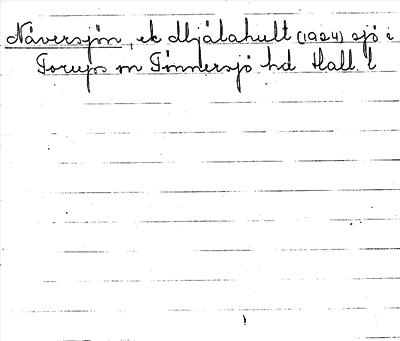 Nåversjön, ek Mjälahult (1924) sjö i
Torups sn Tönnersjö hd Hall. l